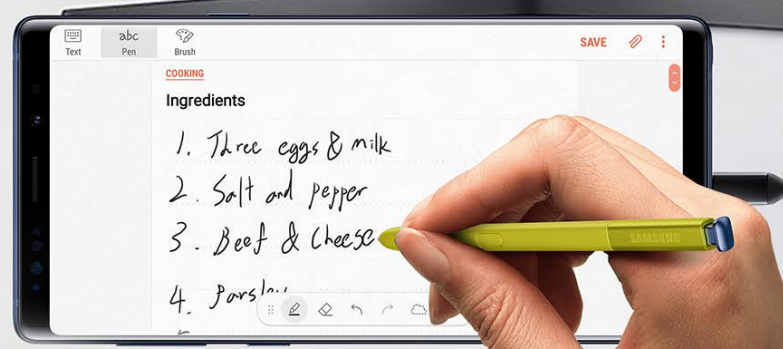 Text abc Pen Brush SAVE
COOKING
Ingredients
1. Three eggs & milk
2. Salt and pepper
3. Beef & Cheese
SAMSUNG
4. Parsley